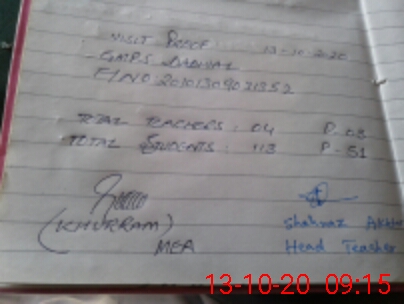 VISIT PROOF: 13-10-2020
GMPS
TOTAL TEACHERS: 04 P-03
TOTAL STUDENTS: 113 P-51
(KHURRAM)
MEA
Shahnaz Akhtar
Head Teacher
13-10-20 09:15